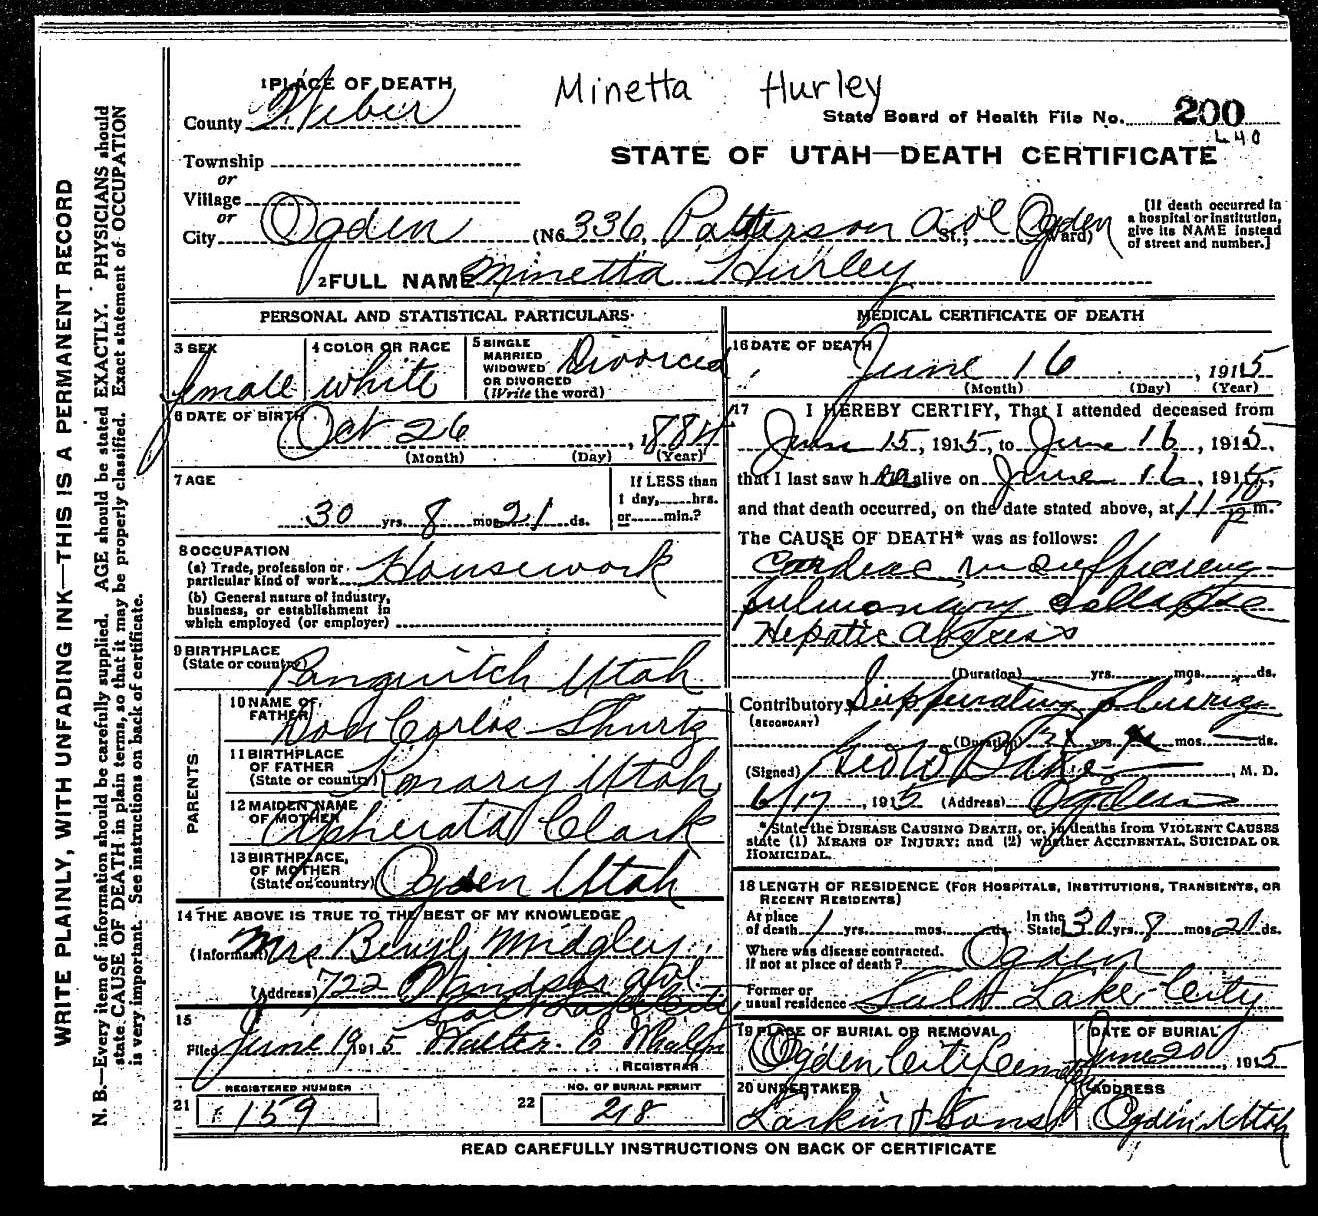 WRITE PLAINLY, WITH UNFADING INK—THIS IS A PERMANENT RECORD
N. B.—Every item of information should be carefully supplied. AGE should be stated EXACTLY. PHYSICIANS should
state CAUSE OF DEATH in plain terms, so that it may be properly classified. Exact statement of OCCUPATION
is very important. See instructions on back of certificate.
1 PLACE OF DEATH
Minetta Hurley
County Weber
State Board of Health File No. 200
L40
STATE OF UTAH—DEATH CERTIFICATE
Township
or
Village
or
City Ogden (No 336, Patterson Ave St.; Ogden Ward)
[If death occurred in
a hospital or institution,
give its NAME instead
of street and number.]
2 FULL NAME Minetta Hurley
PERSONAL AND STATISTICAL PARTICULARS
3 SEX
female
4 COLOR OR RACE
white
5 SINGLE
MARRIED
WIDOWED
OR DIVORCED
(Write the word)
Divorced
6 DATE OF BIRTH
Oct 26, 1884
(Month) (Day) (Year)
7 AGE
30 yrs. 8 mos. 21 ds.
If LESS than
1 day, hrs.
or min.?
8 OCCUPATION
(a) Trade, profession or
particular kind of work Housework
(b) General nature of industry,
business, or establishment in
which employed (or employer)
9 BIRTHPLACE
(State or country) Panguitch Utah
PARENTS
10 NAME OF
FATHER Don Carlos Shurtz
11 BIRTHPLACE
OF FATHER
(State or country) Utah
12 MAIDEN NAME
OF MOTHER Clark
13 BIRTHPLACE,
OF MOTHER
(State or country) Ogden Utah
14 THE ABOVE IS TRUE TO THE BEST OF MY KNOWLEDGE
(Informant) Mrs Midgley
(Address) 722 Windsor Ave
Salt Lake City
15
Filed June 19 1915 Walter E Whalen
REGISTRAR
REGISTERED NUMBER
21 159
NO. OF BURIAL PERMIT
22 218
MEDICAL CERTIFICATE OF DEATH
16 DATE OF DEATH
June 16, 1915
(Month) (Day) (Year)
17 I HEREBY CERTIFY, That I attended deceased from
15, 1915, to June 16, 1915,
that I last saw h er alive on June 16, 1915,
and that death occurred, on the date stated above, at 11 m.
The CAUSE OF DEATH* was as follows:
Cardiac insufficiency
pulmonary collapse
Hepatic Abscess
(Duration) yrs. mos. ds.
Contributory Suppurating pleurisy
(SECONDARY)
(Duration) yrs. mos. ds.
(Signed) Geo W Baker, M. D.
6/17, 1915 (Address) Ogden
* State the DISEASE CAUSING DEATH, or, in deaths from VIOLENT CAUSES
state (1) MEANS OF INJURY; and (2) whether ACCIDENTAL, SUICIDAL OR
HOMICIDAL.
18 LENGTH OF RESIDENCE (FOR HOSPITALS, INSTITUTIONS, TRANSIENTS, OR
RECENT RESIDENTS)
At place
of death 1 yrs. mos. ds.
In the
State 30 yrs. 8 mos. 20 ds.
Where was disease contracted.
if not at place of death? Ogden
Former or
usual residence Salt Lake City
19 PLACE OF BURIAL OR REMOVAL
Ogden City Cemetery
DATE OF BURIAL
June 20, 1915
20 UNDERTAKER
Larkin & Sons
ADDRESS
Ogden Utah
READ CAREFULLY INSTRUCTIONS ON BACK OF CERTIFICATE